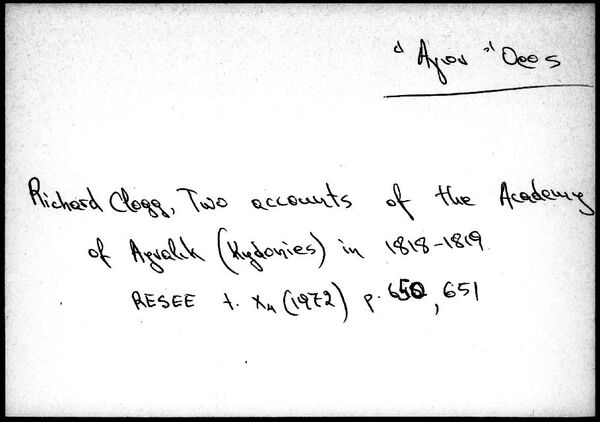 Ἅγιον Ὄρος
Richard Clogg, Two accounts of the Academy
of Ayvalik (Kydonies) in 1818-1819
RESEE t. X4 (1972) p. 650, 651